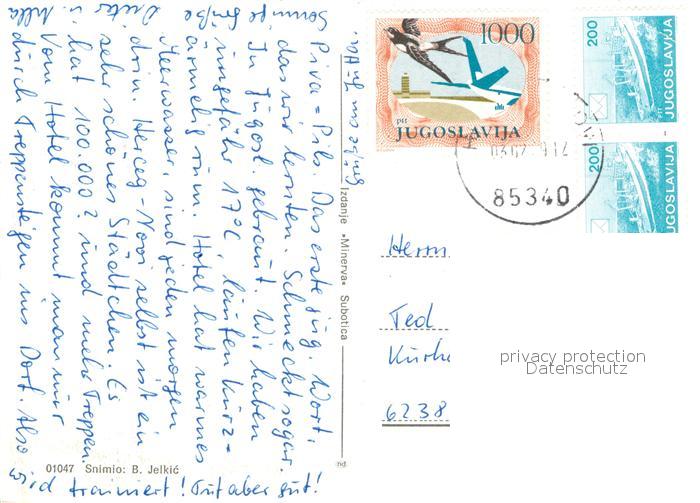 Piva = Pils. Das erste jug. Wort,
das wir lernten. Schmeckt sogar.
In Jugosl. gebraut. Wir haben
ungefähr 17°C, laufen kurz-
ärmelig rum. Hotel hat warmes
Meerwasser, sind jeden morgen
drin. Herceg-Novi selbst ist ein
sehr schönes Städtchen. Es
hat 100.000? und mehr Treppen.
Vom Hotel kommt man nur
durch Treppensteigen ins Dorf. Also
wird trainiert! Tut aber gut!
Sonnige Grüße
Dieter u.
Grüße an Fr. Ha.
01047 Snimio: B. Jelkić
Izdanje »Minerva« Subotica
1000
ptt
JUGOSLAVIJA
200
JUGOSLAVIJA
200
JUGOSLAVIJA
85340
Herrn
Ted
6238
privacy protection
Datenschutz